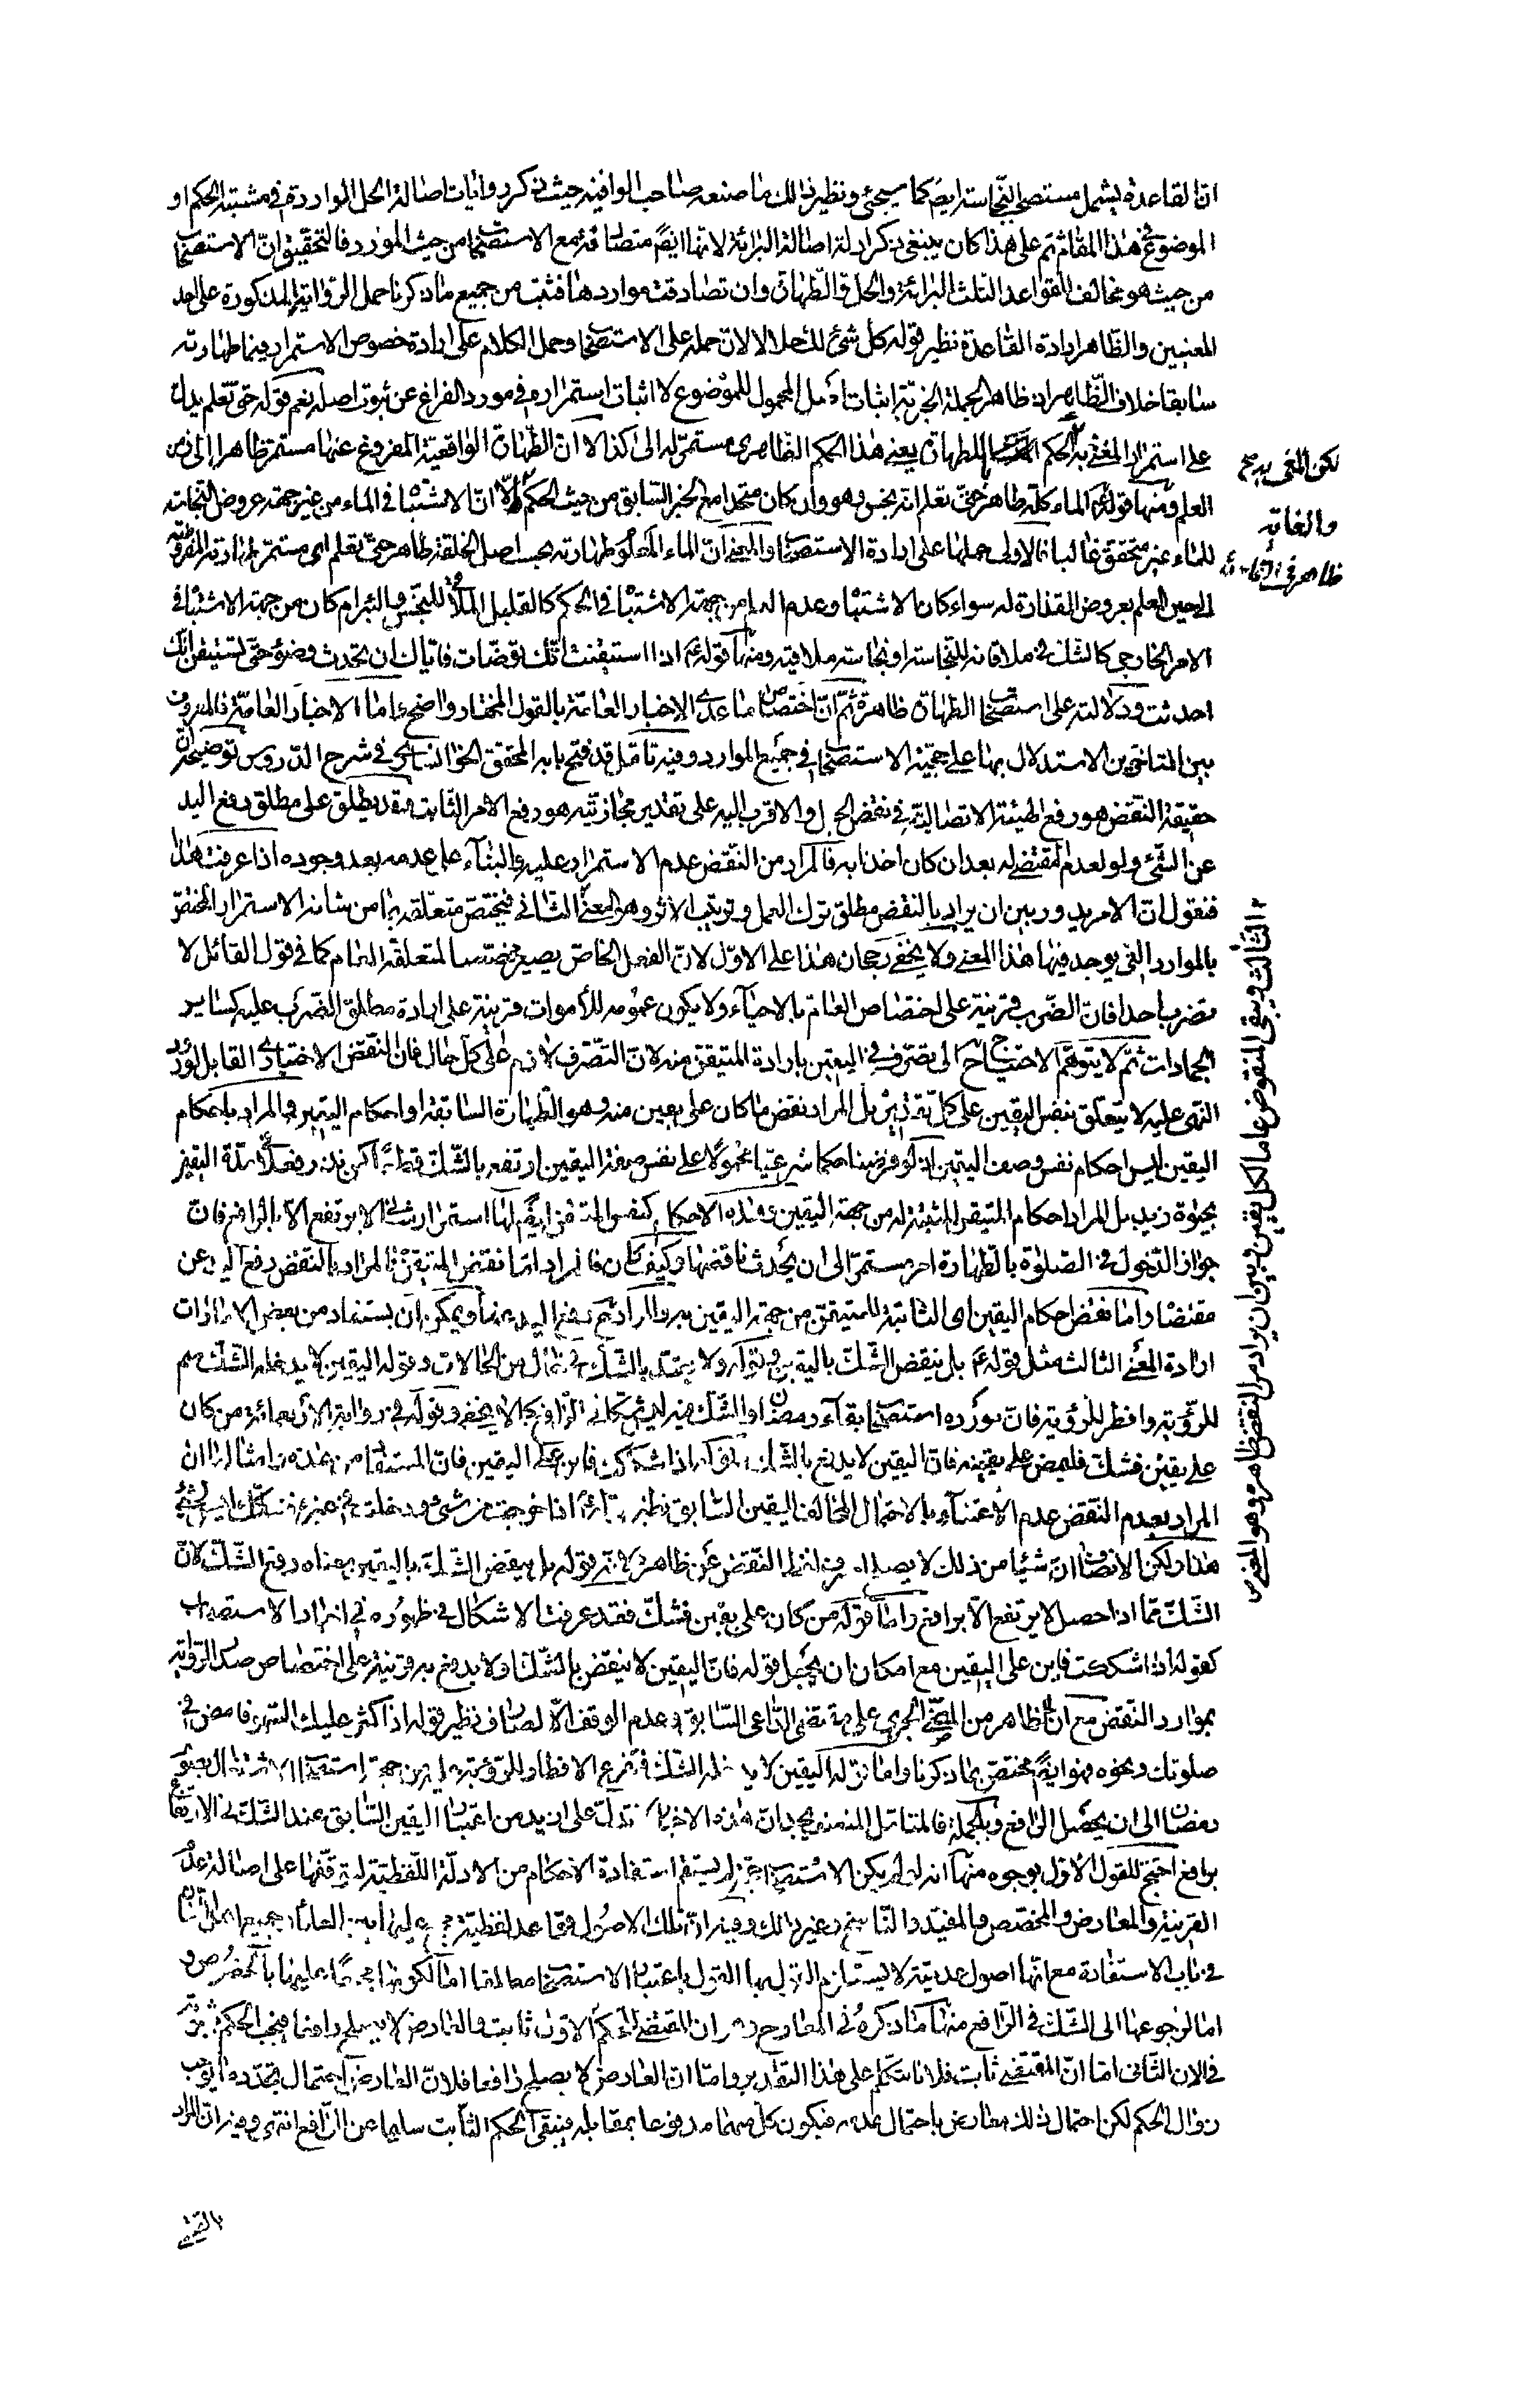 ان القاعدة يشمل مستصحب النجاسة ايضا كما سيجئ ونظير ذلك ما صنعه صاحب الوافيه حيث ذكر روايات اصالة الحل الواردة في مشتبه الحكم او
الموضوع في هذا المقام ثم على هذا كان ينبغى ذكر ادلة اصالة البرائة لانها ايضا متصادقة مع الاستصحاب من حيث المورد فالتحقيق ان الاستصحاب
من حيث هو مخالف للقواعد الثلث البرائة والحل والطهارة وان تصادقت مواردها فثبت من جميع ما ذكرنا حمل الرواية المذكورة على احد
المعنيين والظاهر ارادة القاعدة نظير قوله كل شئ لك حلال لان حمله على الاستصحاب وحمل الكلام على ارادة خصوص الاستمرار فيما طهارته
سابقا خلاف الظاهر اذ ظاهر الجملة الخبرية اثبات اصل المحمول للموضوع لا اثبات استمراره في مورد الفراغ عن ثبوت اصله نعم قوله حتى تعلم يدل
على استمرار المغيى به الحكم بالطهارة يعنى هذا الحكم الظاهرى مستمر له الى كذا لا ان الطهارة الواقعية المفروغ عنها مستمرة ظاهرا الى زمن
العلم ومنها قوله ع الماء كله طاهر حتى تعلم انه نجس وهو وان كان متحدا مع الخبر السابق من حيث الحكم الا ان الاشتباه في الماء من غير جهة عروض النجاسة
للماء غير متحقق غالبا فالاولى حملها على ارادة الاستصحاب والمعنى ان الماء المعلوم طهارته بحسب اصل الخلقة طاهر حتى تعلم اى مستمر طهارته المفروضة
الى حين العلم بعروض القذارة له سواء كان الاشتباه وعدم العلم من جهة الاشتباه في الحكم كالقليل الملاقى للنجس والبئر ام كان من جهة الاشتباه في
الامر الخارجى كالشك في ملاقاته للنجاسة او نجاسة ملاقيه ومنها قوله ع اذا استيقنت انك توضات فاياك ان تحدث وضوء حتى تستيقن انك
احدثت ودلالته على استصحاب الطهارة ظاهرة ثم ان اختصاص ما عدى الاخبار العامة بالقول المختار واضح واما الاخبار العامة فالمعروف
بين المتاخرين الاستدلال بها على حجية الاستصحاب في جميع الموارد وفيه تامل قد فتح بابه المحقق الخوانسارى في شرح الدروس توضيحه ان
حقيقة النقض هو رفع الهيئة الاتصالية في نقض الحبل والاقرب اليه على تقدير مجازيته هو رفع الامر الثابت وقد يطلق على مطلق رفع اليد
عن الشئ ولو لعدم المقتضى له بعد ان كان اخذا به فالمراد من النقض عدم الاستمرار عليه والبناء على عدمه بعد وجوده اذا عرفت هذا
فنقول ان الامر يدور بين ان يراد بالنقض مطلق ترك العمل وترتيب الاثر وهو المعنى الثالث ويبقى المنقوض عاما لكل يقين وبين ان يراد من النقض ظاهره وهو المعنى الثانى فيختص متعلقه بما من شانه الاستمرار المختص
بالموارد التى يوجد فيها هذا المعنى ولا يخفى رجحان هذا على الاول لان الفعل الخاص يصير مخصصا لمتعلقه العام كما في قول القائل لا
تضرب احدا فان الضرب قرينة على اختصاص العام بالاحياء ولا يكون عمومه للاموات قرينة على ارادة مطلق الضرب عليه كساير
الجمادات ثم لا يتوهم الاحتياج ح الى تصرف في اليقين بارادة المتيقن منه لان التصرف لازم على كل حال فان النقض الاختيارى القابل لورود
النهى عليه لا يتعلق بنفس اليقين على كل تقدير بل المراد نقض ما كان على يقين منه وهو الطهارة السابقة او احكام اليقين والمراد باحكام
اليقين ليس احكام نفس وصف اليقين اذ لو فرضنا حكما شرعيا محمولا على نفس صفة اليقين ارتفع بالشك قطعا كمن نذر فعلا في مدة اليقين
بحيوة زيد بل المراد احكام المتيقن المثبتة له من جهة اليقين وهذه الاحكام كنفس المتيقن ايضا لها استمرار شانى لا يرتفع الا بالرافع فان
جواز الدخول في الصلوة بالطهارة امر مستمر الى ان يحدث ناقضها وكيف كان فالمراد اما نقض المتيقن فالمراد بالنقض رفع اليد عن
مقتضاه واما نقض احكام اليقين اى الثابتة للمتيقن من جهة اليقين به والمراد ح رفع اليد عنها ويمكن ان يستفاد من بعض الامارات
ارادة المعنى الثالث مثل قوله ع بل ينقض الشك باليقين وقوله ولا يعتد بالشك في حال من الحالات وقوله اليقين لا يدخله الشك صم
للرؤية وافطر للرؤية فان مورده استصحاب بقاء رمضان والشك فيه ليس شكا في الرافع كما لا يخفى وقوله في رواية الاربعمائة من كان
على يقين فشك فليمض على يقينه فان اليقين لا يدفع بالشك وقوله اذا شككت فابن على اليقين فان المستفاد من هذه وامثالها ان
المراد بعدم النقض عدم الاعتناء بالاحتمال المخالف لليقين السابق نظير قوله ع اذا خرجت من شئ ودخلت في غيره فشكك ليس بشئ
هذا ولكن الانصاف ان شيئا من ذلك لا يصلح لصرف لفظ النقض عن ظاهره لان قوله بل ينقض الشك باليقين معناه رفع الشك لان
الشك مما اذا حصل لا يرتفع الا برافع واما قوله من كان على يقين فشك فقد عرفت الاشكال في ظهوره في اعتبار الاستصحاب
كقوله اذا شككت فابن على اليقين مع امكان ان يجعل قوله فان اليقين لا ينقض بالشك او لا يدفع به قرينة على اختصاص صدر الرواية
بموارد النقض مع ان الظاهر من المضى الجرى على مقتضى الداعى السابق وعدم الوقف الا لصارف نظير قوله اذا كثر عليك السهو فامض في
صلوتك ونحوه فهو ايضا مختص بما ذكرنا واما قوله اليقين لا يدخله الشك فتفرع الافطار للرؤية عليه من جهة استصحاب الاشتغال بصوم
رمضان الى ان يحصل الرافع وبالجملة فالمتامل المنصف يجد ان هذه الاخبار لا تدل على ازيد من اعتبار اليقين السابق عند الشك في الارتفاع
برافع احتج للقول الاول بوجوه منها انه لو لم يكن الاستصحاب حجة لم يستقم استفادة الاحكام من الادلة اللفظية لتوقفها على اصالة عدم
القرينة والمعارض والمخصص والمقيد والناسخ وغير ذلك وفيه ان تلك الاصول قواعد لفظية مجمع عليها بين العلماء وجميع اهل اللسان
في باب الاستفادة مع انها اصول عدمية لا يستلزم القول بها القول باعتبار الاستصحاب مطلقا اما لكونها مجمعا عليها بالخصوص و
اما لرجوعها الى الشك في الرافع ومنها ما ذكره في المعارج وهو ان المقتضى للحكم الاول ثابت والعارض لا يصلح رافعا فيجب الحكم بثبوته
في الان الثانى اما ان المقتضى ثابت فلانا نتكلم على هذا التقدير واما ان العارض لا يصلح رافعا فلان العارض احتمال تجدد ما يوجب
زوال الحكم لكن احتمال ذلك معارض باحتمال عدمه فيكون كل منهما مدفوعا بمقابله فيبقى الحكم الثابت سليما عن الرافع انتهى وفيه ان المراد
لكن المغيى به ح
والغاية